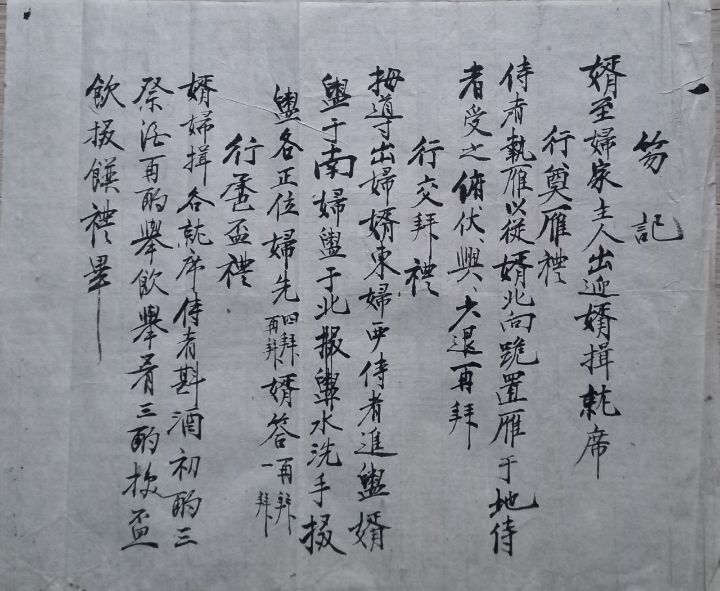 笏記
婿至婦家主人出迎婿揖就席
行奠雁禮
侍者執雁以從婿北向跪置雁于地侍
者受之俯伏興少退再拜
行交拜禮
姆導出婦婿東婦西侍者進盥婿
盥于南婦盥于北撥盥水洗手掇
盥各正位婦先四拜再拜婿答一再拜拜
行巹盃禮
婿婦揖各就席侍者斟酒初酌三
祭酒再酌擧飮擧肴三酌換盃
飮掇饌禮畢